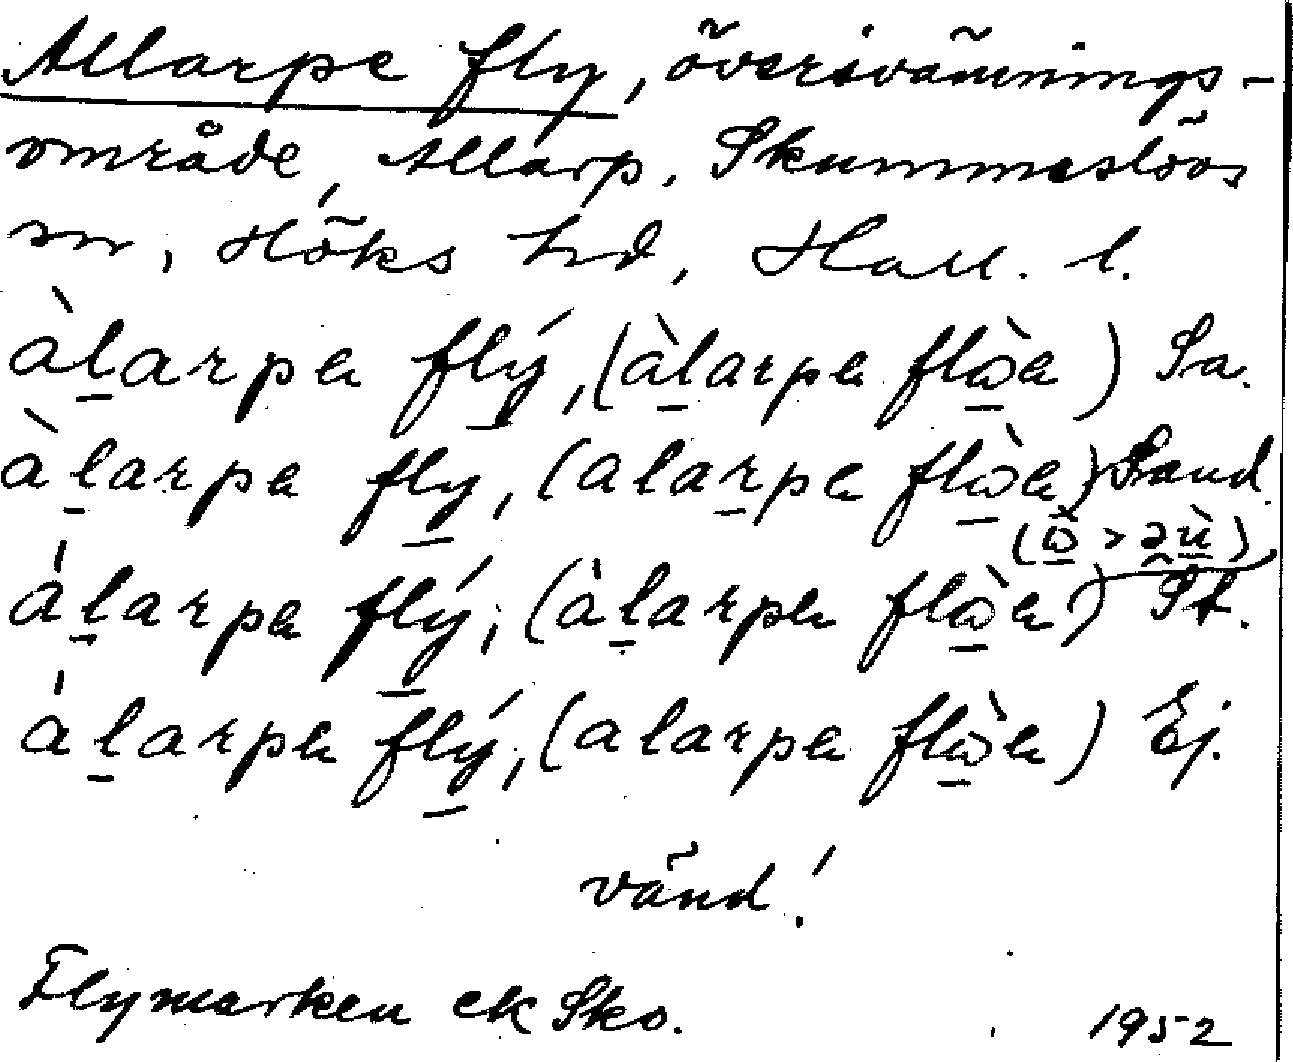 Allarpe fly, översvämnings-
område, Allarp, Skummeslövs
sn, Höks hd, Hall. l.
àl̲arpa flý̲, (àl̲arpa flὼ̲a) Sa.
àl̲arpa fly̲, (alar̲pa flὼ̲a) Sand.
(ὼ̲ > əù̲)
ál̲arpa flý̲, (àl̲arpa flὼ̲a) St.
ál̲arpa flý̲, (alarpa flὼ̲a) Ej.
vänd!
Flymarken ek Sko.
1952